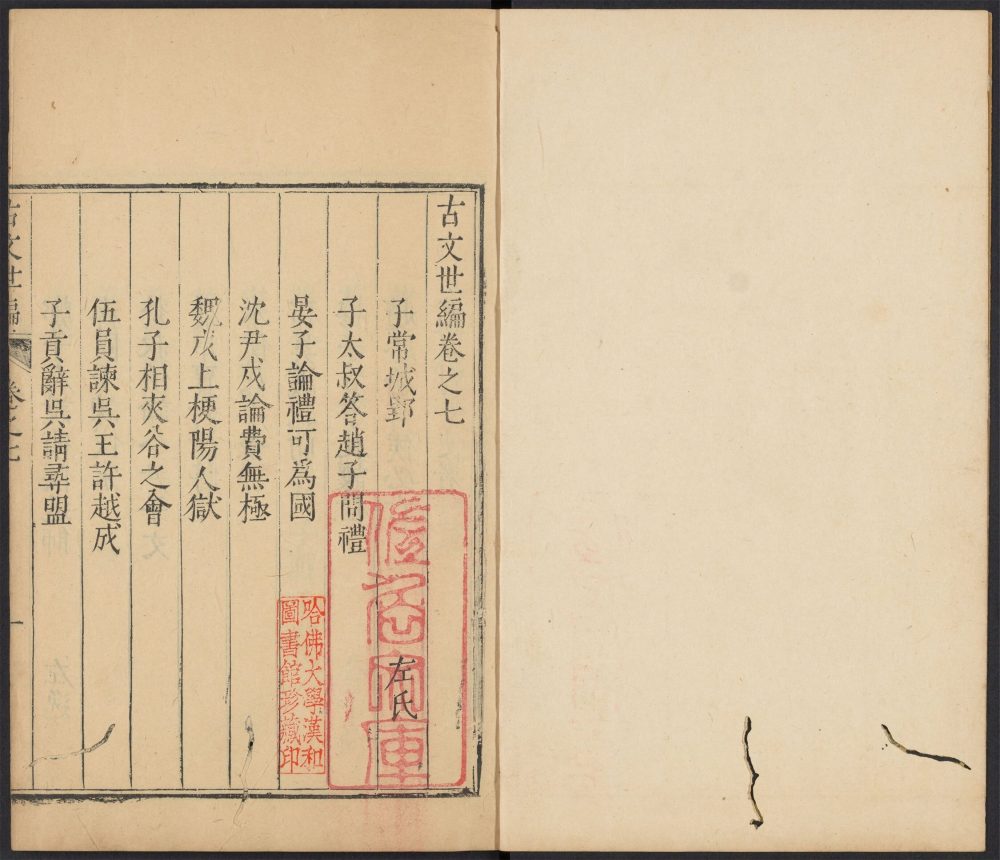 古文世編卷之七
子常城郢 左氏
子太叔答趙子問禮
晏子論禮可為國
沈尹戍論費無極
魏戊上梗陽人獄
孔子相夾谷之會
伍員諫吳王許越成
子貢辭吳請尋盟
古文世編 卷之七 一
哈佛大學漢和
圖書館珍藏印